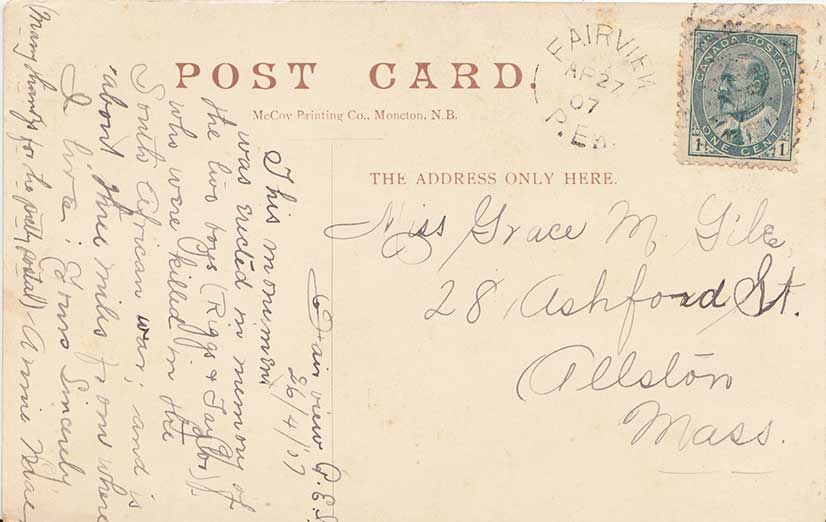 POST CARD.
McCoy Printing Co., Moncton, N.B.
THE ADDRESS ONLY HERE.
FAIRVIEW
AP 27
07
P.E.I.
CANADA POSTAGE
1 ONE CENT 1
Miss Grace M. Gile
28, Ashford St.
Allston
Mass.
Fairview P.E.I.
26/4/07
This monument
was erected in memory of
the two boys (Riggs & Taylor)
who were killed in the
South African war; and is
about three miles from where
I live. Yours Sincerely
Annie
(Many thanks for the pretty postal)